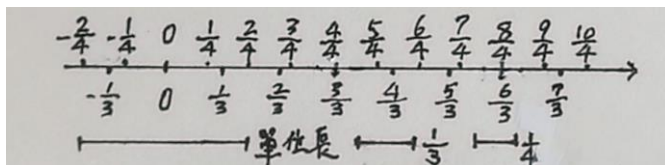 -2/4 -1/4 0 1/4 2/4 3/4 4/4 5/4 6/4 7/4 8/4 9/4 10/4
-1/3 0 1/3 2/3 3/3 4/3 5/3 6/3 7/3
單位長 1/3 1/4